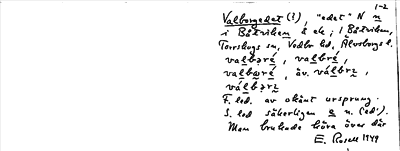 1-2
Valborgedet (?), "edet" N n
i Båtviken & ele; i Båtviken,
Torrskogs sn, Vedbo hd, Älvsborgs l.
valbəré, valbré,
valbəré, äv. válbrz,
válbərz
F. led. av okänt ursprung.
S. led säkerligen e n. (ed).
Man brukade köra över där
E. Rosell 1949